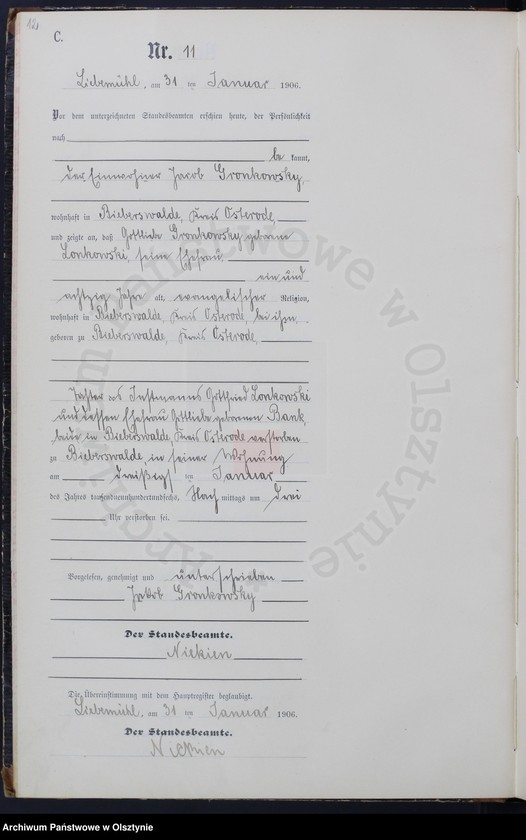 12,
C.
Nr. 11
Liebemühl, am 31 ten Januar 1906.
Vor dem unterzeichneten Standesbeamten erschien heute, der Persönlichkeit
nach
be kannt,
der Einwohner Jacob Gronkowsky,
wohnhaft in Bieberswalde, Kreis Osterode
und zeigte an, daß Gottliebe Gronkowsky geborene
Lonkowski, seine Ehefrau
ein und
achtzig Jahre alt, evangelischer Religion,
wohnhaft in Bieberswalde, Kreis Osterode, bei ihm,
geboren zu Bieberswalde, Kreis Osterode,
Tochter des Instmanns Gottfried Lonkowski
und dessen Ehefrau Gottliebe geborenen Bank,
beide in Bieberswalde, Kreis Osterode verstorben
zu Bieberswalde, in seiner Wohnung
am dreißigsten Januar
des Jahres tausendneunhundertundsechs, Nach mittags um drei
Uhr verstorben sei.
Vorgelesen, genehmigt und unterschrieben
Jakob Gronkowsky
Der Standesbeamte.
Die Übereinstimmung mit dem Hauptregister beglaubigt.
Liebemühl, am 31 ten Januar 1906.
Der Standesbeamte.
Archiwum Państwowe w Olsztynie